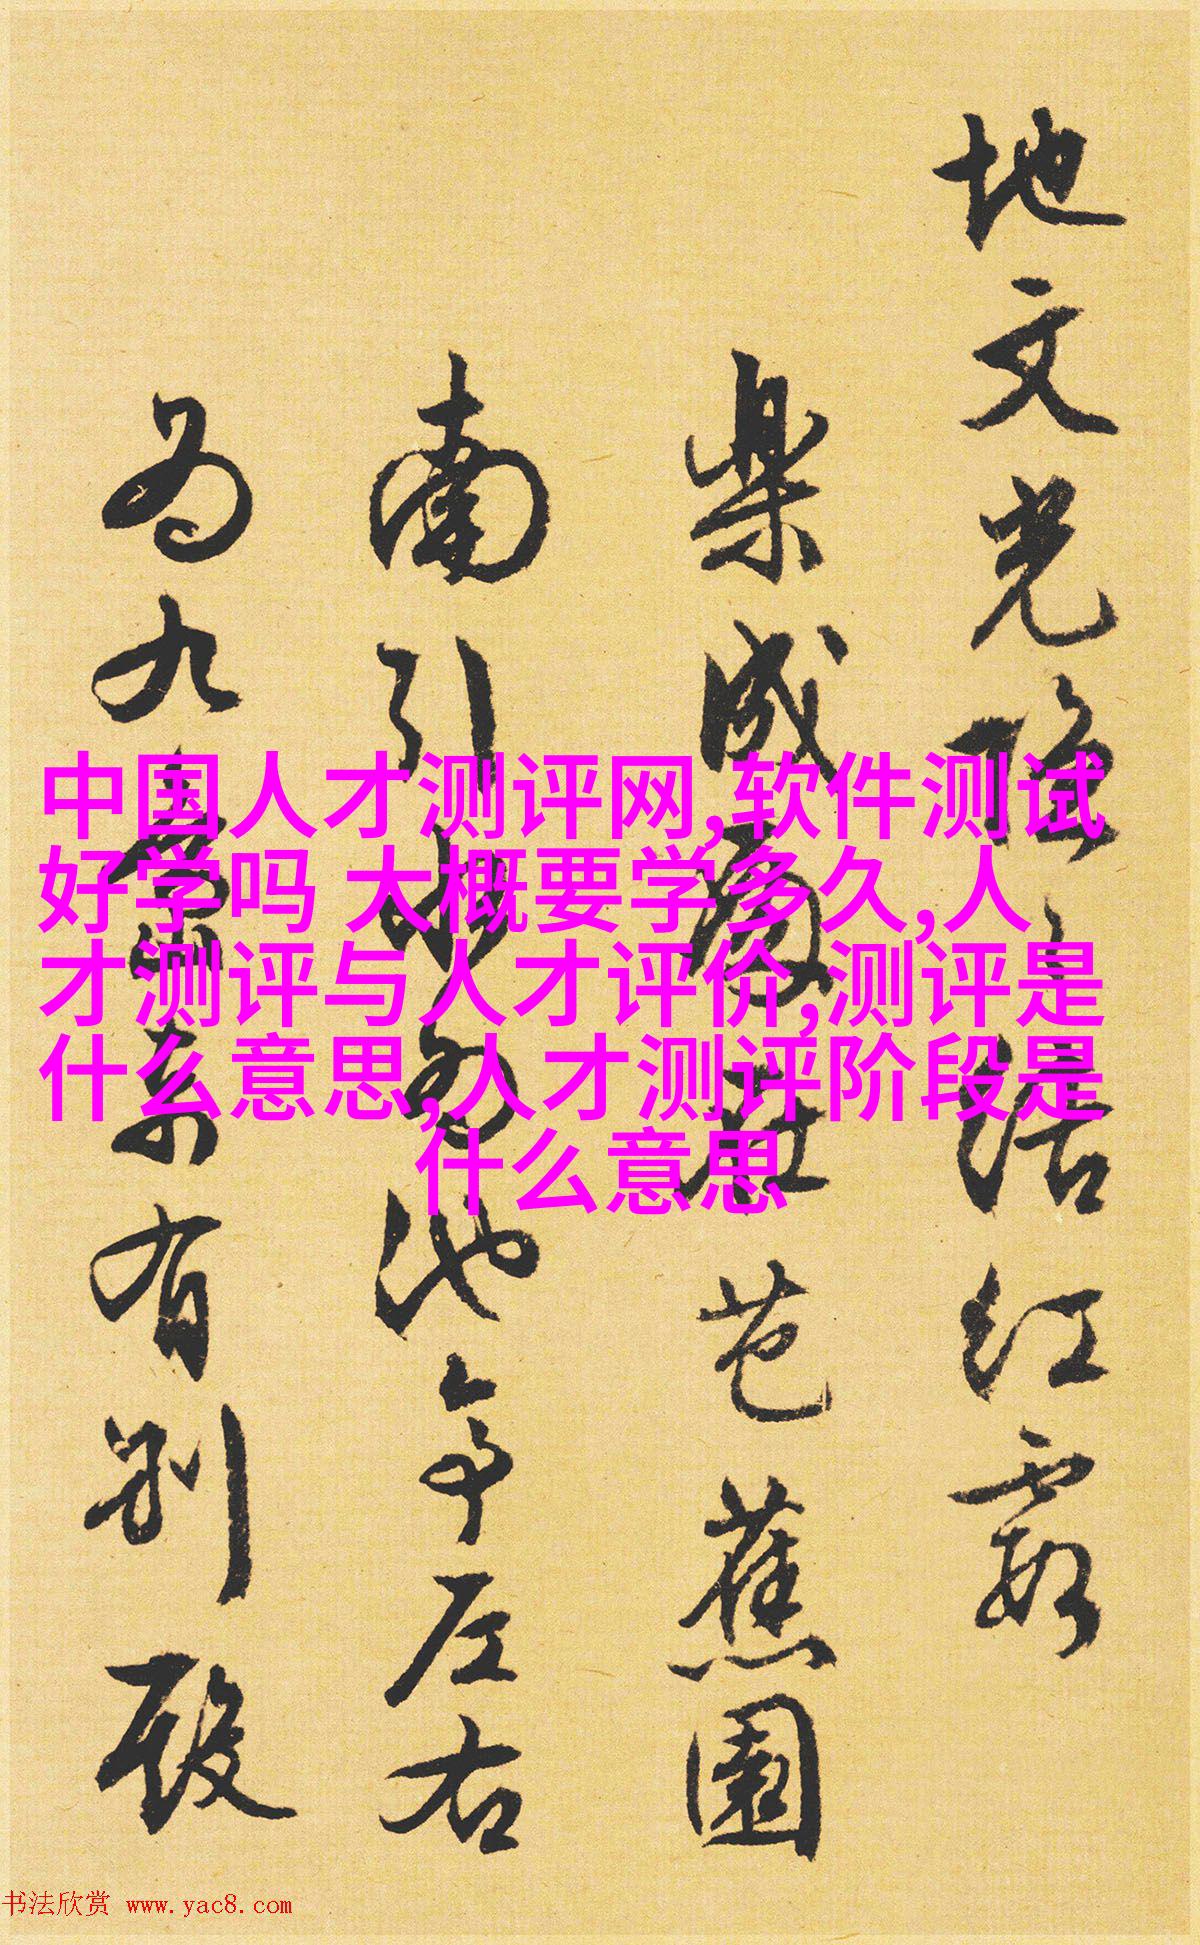 地文光陰
結紅霞
樂成
芭蕉園
南引
池亭左右
為九
有別殿
中国人才测评网,软件测试
好学吗 大概要学多久,人
才测评与人才评价,测评是
什么意思,人才测评阶段是
什么意思
书法欣赏 www.yac8.com